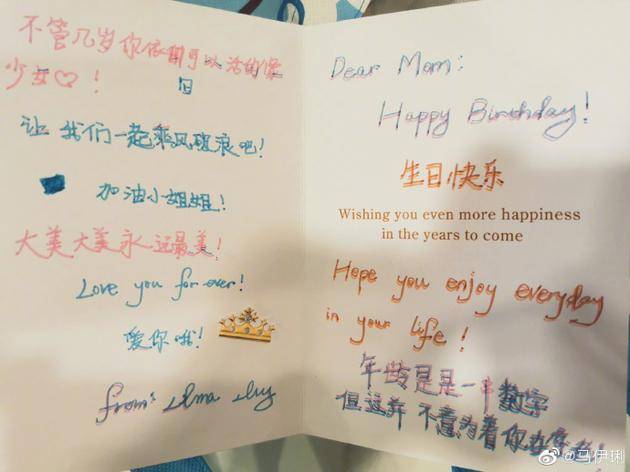 不管几岁你依旧可以活的像
少女♡!
旧
让我们一起乘风破浪吧!
加油小姐姐!
大美大美永远最美!
Love you for ever!
爱你哦!
from:
Dear Mom:
Happy Birthday!
生日快乐
Wishing you even more happiness
in the years to come
Hope you enjoy everyday
in your life!
年龄是是一串数字
但这并不意为着你
@马伊琍